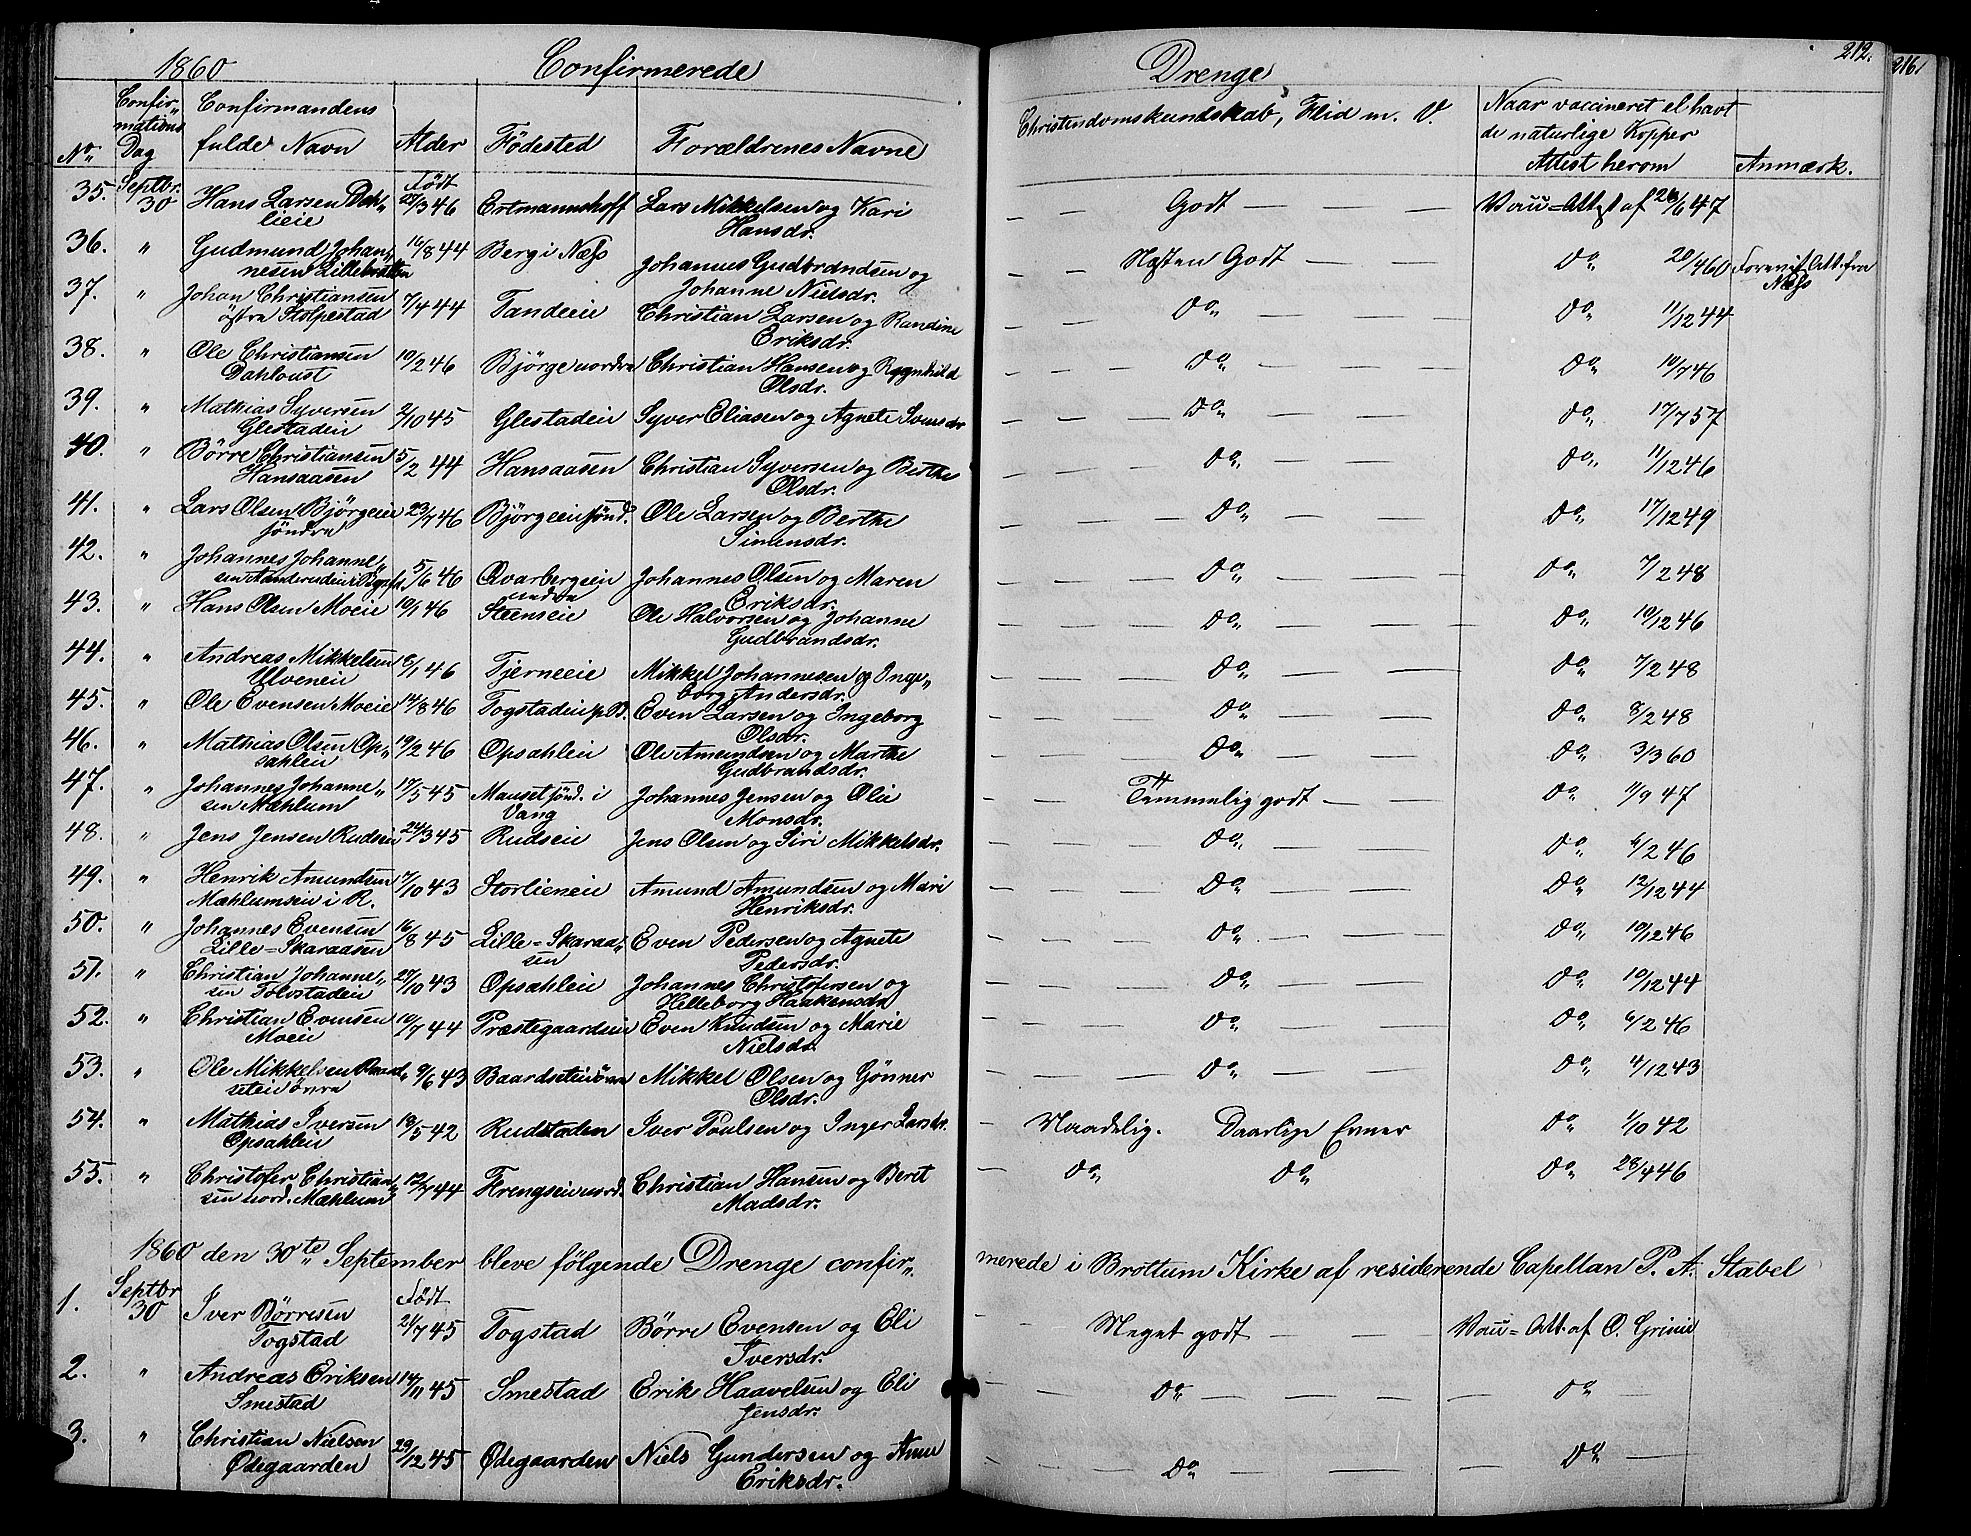 212.
216.
1860 Confirmerede Drenge
No. Confir„mations Dag Confirmandens fulde Navn Alder Födested Forældrenes Navne Christendomskundskab, Flid m. V. Naar vaccineret el havt de naturlige Kopper Attest herom Anmærk.
35. Septbr. 30 Hans Larsen Dahl„ Født /3 46 Ertmannshoff Lars Mikkelsen og Kari — — Godt — — — Vacc=Att. af 26/6 47
lieie Hansdr.
36. „ Gudmund Johan„ 16/8 44 Berg i Næss Johannes Gudbrandsen og — — Næsten Godt — — — Do 20/4 60 Att. fra
nesen Lillebratten Johanne Nielsdr. Næss
37. „ Johan Christiansen 7/4 44 Tandeeie Christian Larsen og Randine — — Do — — — Do 11/12 44
östra Stolpestad Eriksdr.
38. „ Ole Christiansen 10/2 46 Björge nordre Christian Hansen og Rognhild — — — Do — — — Do 10/7 46
Dahloust Olsdr.
39. „ Mathias Syversen 2/10 45 Glestadeie Syver Eliasen og Agnete Svensdr — — — Do — — — Do 17/7 57
Glestadeie
40. „ Börre Christiansen 5/2 44 Hansaasen Christian Syversen og Berthe — — — Do — — — Do 11/12 46
Hansaasen Olsdr.
41. „ Lars Olsen Björgeeie 23/7 46 Björgeeie sönd. Ole Larsen og Berthe — — — Do — — — Do 17/12 49
söndre Simensdr.
42. „ Johannes Johanne„ 5/6 46 Qvarbergseie Johannes Olsen og Maren — — — Do — — — Do 7/2 48
sen nedre Eriksdr.
43. „ Hans Olsen Moeie 10/1 46 Steenseie Ole Halvorsen og Johanne — — — Do — — — Do 10/12 46
Gudbrandsdr.
44. „ Andreas Mikkelsen 6/1 46 Tjerneeie Mikkel Johannesen og Inge„ — — — Do — — — Do 7/2 48
Ulveneie borg Andersdr.
45. „ Ole Evensen Moeie 14/8 46 Togstadeie p. B. Even Larsen og Ingeborg — — — Do — — — Do 8/2 48
Olsdr.
46. „ Mathias Olsen Op„ 19/2 46 Opsahleie Ole Amundsen og Marthe — — — Do — — — Do 3/3 60
sahleie Gudbrandsdr.
47. „ Johannes Johanne„ 17/5 45 Mauset sönd. i Johannes Jensen og Olie — — Temmelig godt — — Do 11/9 47
sen Mæhlum Vang Monsdr.
48. „ Jens Jensen Rudseie 24/3 45 Rudseie Jens Olsen og Siri Mikkelsdr. — — — Do — — — Do 6/2 46
49. „ Henrik Amundsen 17/10 43 Storlieneie Amund Amundsen og Mari — — — Do — — — Do 12/12 44
Mæhlumseie i R. Henriksdr.
50. „ Johannes Evensen 16/8 45 Lille=Skaraa„ Even Pedersen og Agnete — — — Do — — — Do 10/12 46
Lille=Skaraasen sen Pedersdr.
51. „ Christian Johanne„ 27/10 43 Opsahleie Johannes Christofersen og — — — Do — — — Do 10/12 44
sen Tolvstadeie Helleborg Haakensdr
52. „ Christian Evensen 10/7 44 Præstegaardseie Even Knudsen og Marie — — — Do — — — Do 6/2 46
Moeie Nielsdr.
53. „ Ole Mikkelsen Baard„ 9/6 43 Baardseteie övre Mikkel Olsen og Gönner — — — Do — — — Do 4/12 43
seteie övre Olsdr.
54. „ Mathias Iversen 13/5 42 Rudstaden Iver Poulsen og Inger Larsdr. — Maadelig. Daarlige Evner Do 1/10 42
Opsahleie
55. „ Christofer Christian„ 12/7 44 Frengseie nord. Christian Hansen og Beret — Do Do Do 28/4 46
sen nord. Mæhlum Madsdr.
1860 den 30te September bleve fölgende Drenge confir„ merede i Brottum Kirke af residerende Capellan P. A. Stabel
1. Septbr 30 Iver Börresen Født 21/7 45 Togstad Börre Evensen og Eli — — Meget godt — — — Vacc=Att. af O. Grinie
Togstad Iversdr.
2. „ Andreas Eriksen 14/11 45 Smestad Erik Haavelsen og Eli — — — Do — — — Do —
Smestad Jensdr.
3. „ Christian Nielsen 29/12 45 Ødegaarden Niels Gundersen og Anne — — — Do — — — Do —
Ødegaarden Eriksdr.